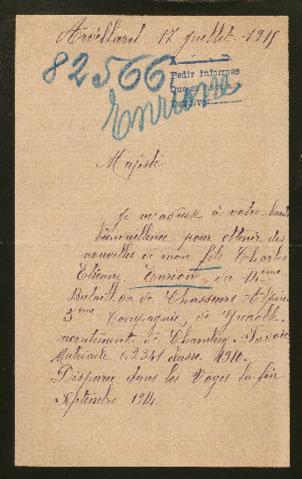 Arvillard 17 juillet 1915
82566
Pedir informes
Enrione
Majesté
Je m'adresse à votre haute
bienveillence pour obtenir des
nouvelles de mon fils Charles
Etienne Enrione du 14ème
Bataillon de Chasseurs Alpin
3ème Compagnie, de Grenoble,
recrutement de Chambéry Savoie
Matricule classe 1910.
Disparu dans les Voges la fin
Septembre 1914.